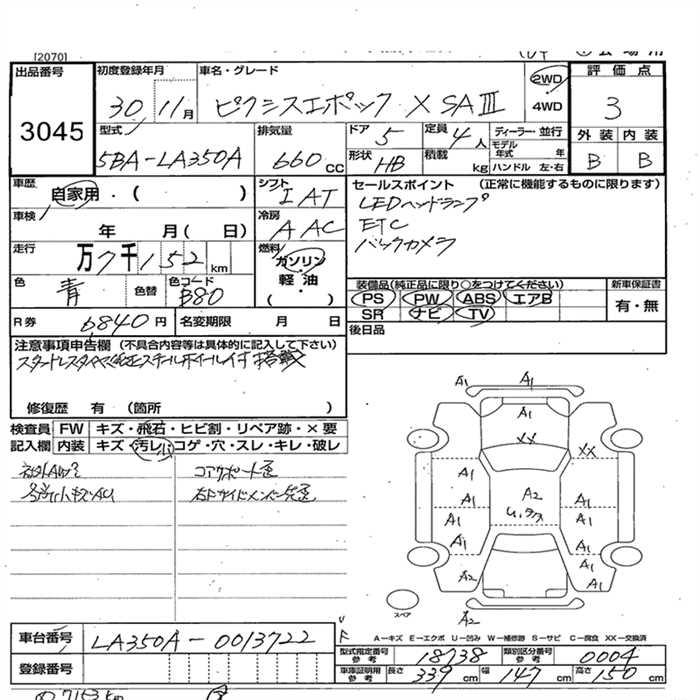 [2070]
出品番号
3045
初度登録年月
30 11月
車名・グレード
ピクシスエポック X SAⅢ
2WD
4WD
評価点
3
外装 内装
B B
型式
5BA-LA350A
排気量
660cc
ドア 5
定員 4人
ディーラー・並行
モデル年式 年
形状 HB
積載 kg
ハンドル 左・右
車歴
自家用・( )
シフト
IAT
車検
年 月(日)
冷房
AAC
走行
万7千152km
燃料
ガソリン
軽油
( )
色
青
色替
色コード
B80
R券 6840円
名変期限 月 日
セールスポイント (正常に機能するものに限ります)
LEDヘッドランプ
ETC
バックカメラ
装備品(純正品に限り○をつけてください)
PS PW ABS エアB
SR ナビ TV
新車保証書
有・無
後日品
注意事項申告欄(不具合内容等は具体的に記入して下さい)
スタッドレスタイヤ純正スチールホイール付 搭載
修復歴 有(箇所 )
検査員 FW キズ・飛石・ヒビ割・リペア跡・×要
記入欄 内装 キズ・汚レ・コゲ・穴・スレ・キレ・破レ
コアサポート歪
右Fサイドメンバー先歪
A1 A1
A1
XX XX
A1 A2 A1
A1 A1
A1 A1
A2 A1
A2
スペア
A-キズ E-エクボ U-凹み W-補修跡 S-サビ C-腐食 XX-交換済
車台番号 LA350A-0013722
登録番号
型式指定番号
参考
18738
類別区分番号
参考
0004
車庫証明用
参考
長さ 339cm 幅 147cm 高さ 150cm
7153km